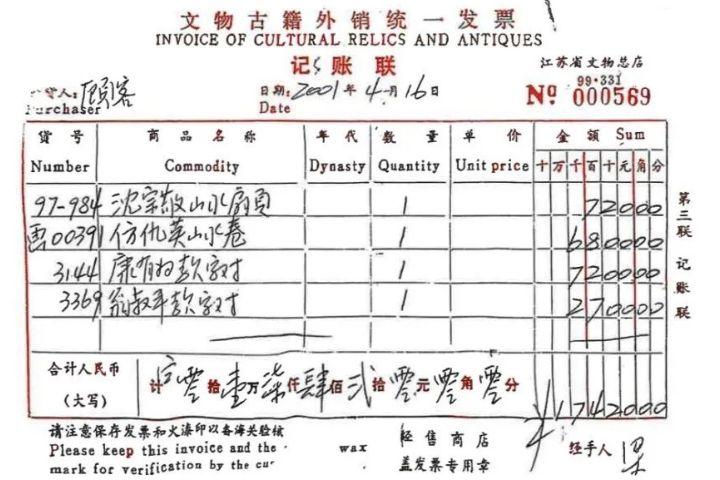 文物古籍外销统一发票
INVOICE OF CULTURAL RELICS AND ANTIQUES
记账联
江苏省文物总店
99·331
人: 顾客
日期: 2001年4月16日
№ 000569
Purchaser
Date
货号 商品名称 年代 数量 单价 金额 Sum
Number Commodity Dynasty Quantity Unit price 十万千百十元角分
97-984 沈宗敬山水扇页 1 72000
画00391 仿仇英山水卷 1 680000
3144 康有为款字对 1 720000
3369 翁叔平款字对 1 270000
合计人民币
(大写)
计 零拾壹万柒仟肆佰贰拾零元零角零分
¥1742000
第三联 记账联
请注意保存发票和火漆印以备海关验核
Please keep this invoice and the wax
mark for verification by the
经售商店
盖发票专用章
经手人 梁